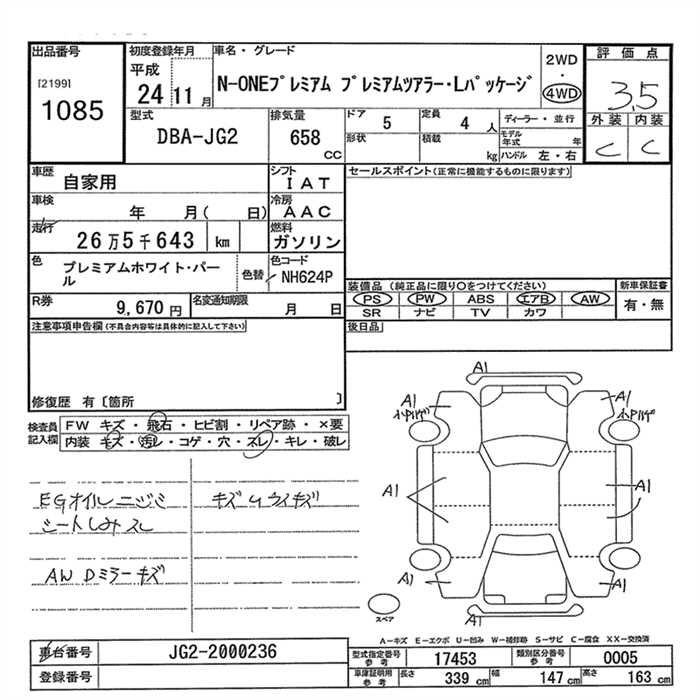 出品番号
[2199]
1085
初度登録年月
平成
24 11月
車名・グレード
N-ONEプレミアム プレミアムツアラー・Lパッケージ
2WD
・
4WD
評価点
3.5
外装 内装
C C
型式
DBA-JG2
排気量
658
CC
ドア
5
定員
4 人
形状
積載
kg
ディーラー・並行
モデル年式 年
ハンドル 左・右
車歴
自家用
シフト
IAT
車検
年 月( 日)
冷房
AAC
走行
26万5千643 km
燃料
ガソリン
色
プレミアムホワイト・パール
色替
色コード
NH624P
R券
9,670円
名変通知期限
月 日
セールスポイント(正常に機能するものに限ります)
装備品 (純正品に限り〇をつけてください)
新車保証書
PS PW ABS エアB AW
有・無
SR ナビ TV カワ
後日品
注意事項申告欄(不具合内容等は具体的に記入して下さい)
修復歴 有〔箇所 〕
検査員記入欄
FW キズ・飛石・ヒビ割・リペア跡・×要
内装 キズ・汚レ・コゲ・穴・スレ・キレ・破レ
EGオイルニジミ
シートしみスレ
AW Dミラーキズ
キズUライキズ
A1
A1
A1
A1
A1
A1
A1
A1
スペア
A-キズ E-エクボ U-凹み W-補修跡 S-サビ C-腐食 XX-交換済
車台番号
JG2-2000236
登録番号
型式指定番号 参考
17453
類別区分番号 参考
0005
車庫証明用 参考
長さ 339 cm
幅 147 cm
高さ 163 cm